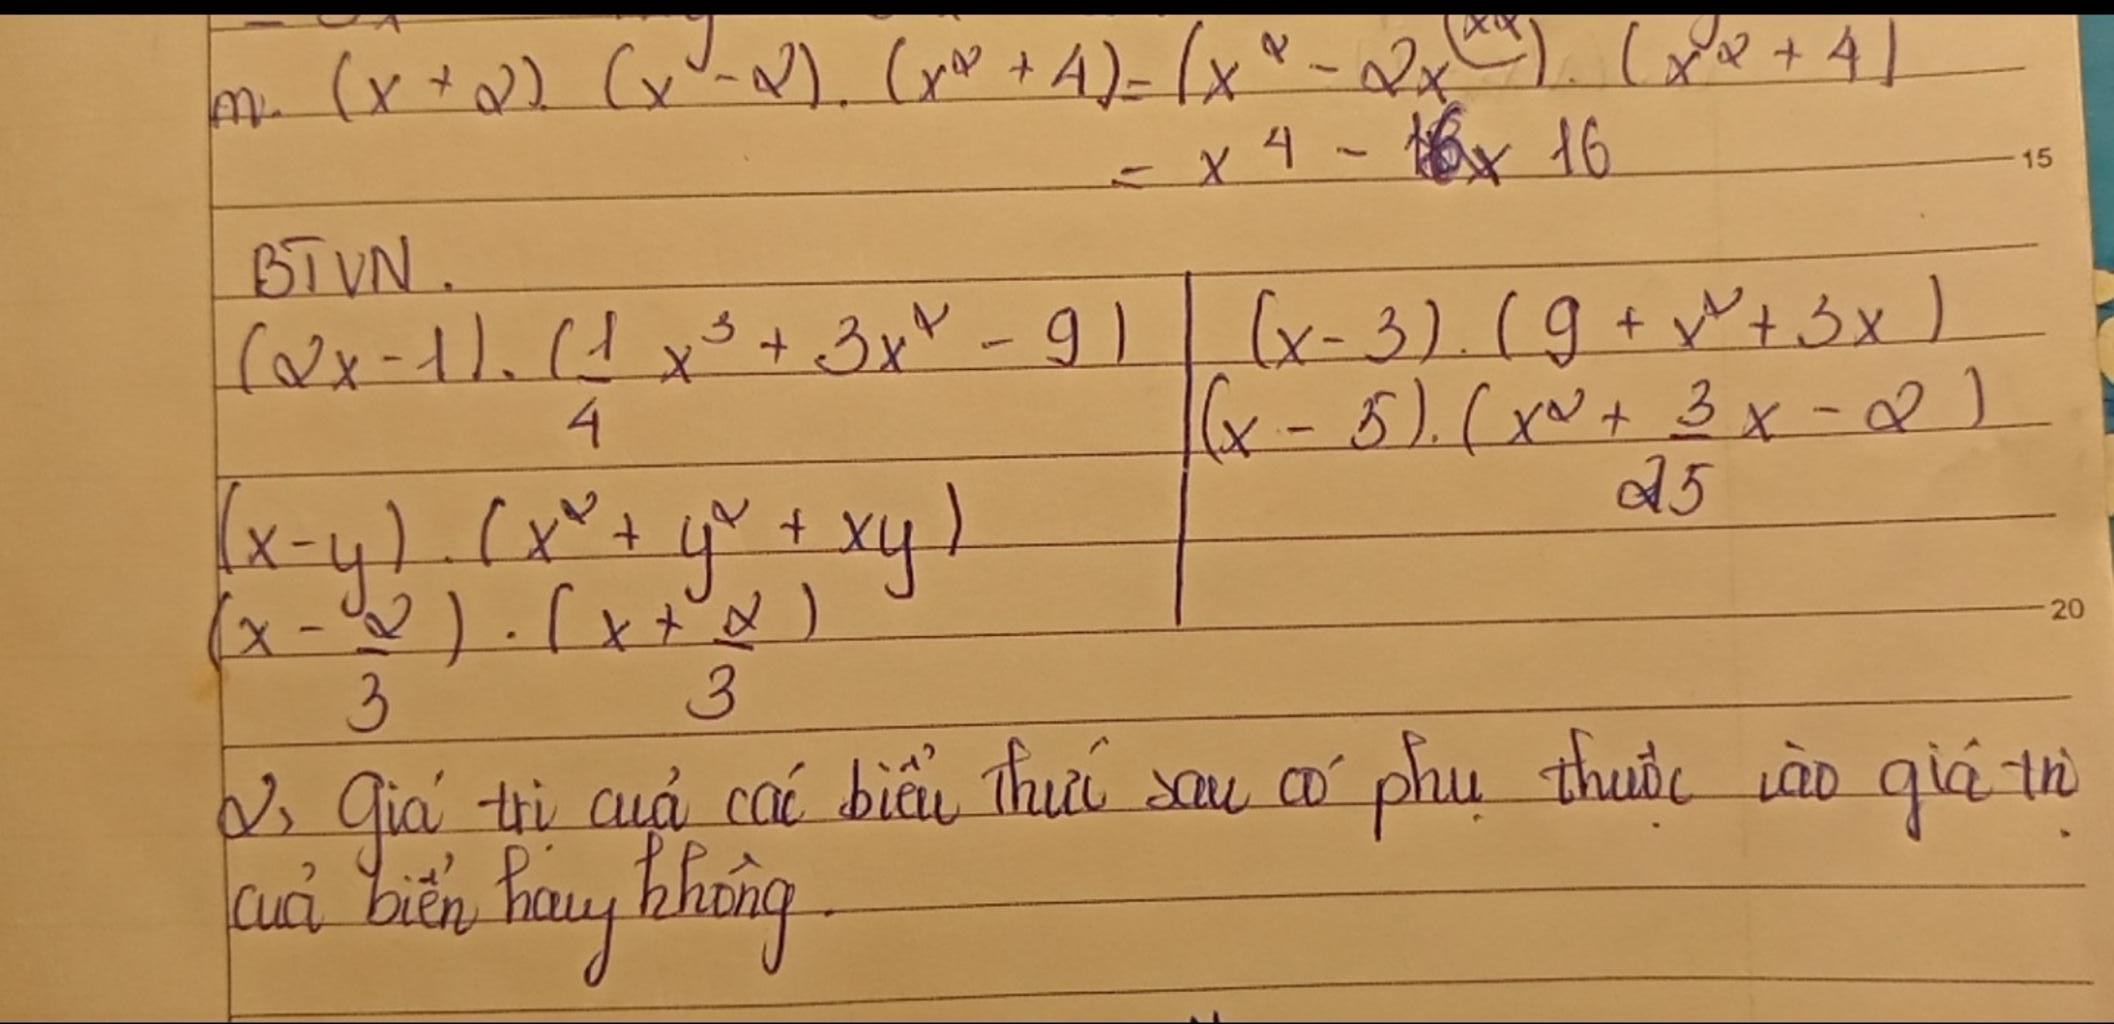 m. (x + 2). (x - 2). (x² + 4) = (x² - 2x ). (x² + 4)
= x⁴ - 16
15
BTVN.
(2x - 1). (1/4 x³ + 3x² - 9) | (x - 3). (9 + x² + 3x)
(x - 5). (x² + 3/25 x - 2)
(x - y). (x² + y² + xy)
(x - 2/3). (x + 2/3)
20
2, Giá trị cuả các biểu thức sau có phụ thuộc vào giá trị
cuả biến hay không.